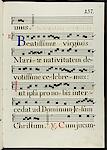 257.
mus.
Beatissimæ virginis
Mariæ nativitatem de-
votissime celebre-mus:
Ut ipsa pro no-bis inter-
cedat ad Dominum Jesum
Christum. Cum jucun-